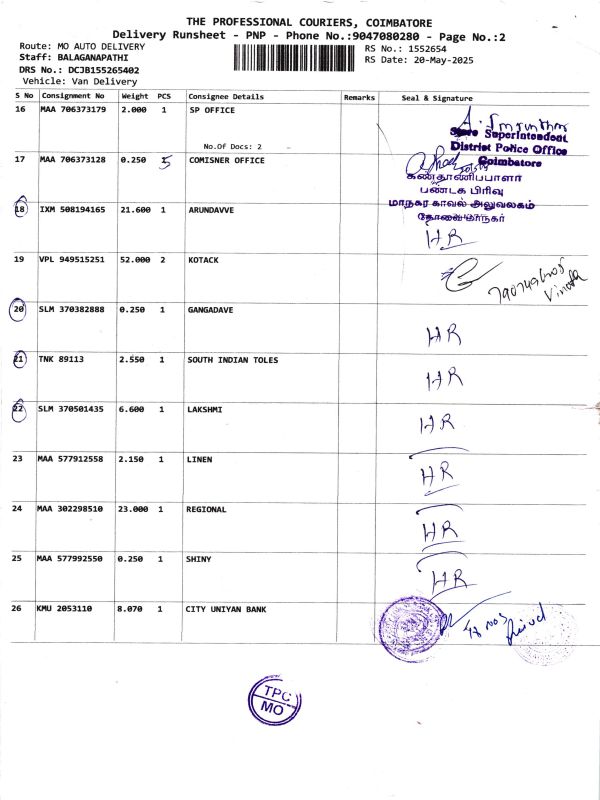 THE PROFESSIONAL COURIERS, COIMBATORE
Delivery Runsheet - PNP - Phone No.:9047080280 - Page No.:2
Route: MO AUTO DELIVERY RS No.: 1552654
Staff: BALAGANAPATHI RS Date: 20-May-2025
DRS No.: DCJB155265402
Vehicle: Van Delivery
S No Consignment No Weight PCS Consignee Details Remarks Seal & Signature
16 MAA 706373179 2.000 1 SP OFFICE
No.Of Docs: 2
Store Superintendent
District Police Office
Coimbatore
17 MAA 706373128 0.250 5 COMISNER OFFICE
கண்காணிப்பாளர்
பண்டக பிரிவு
மாநகர காவல் அலுவலகம்
கோவை மாநகர்
18 IXM 508194165 21.600 1 ARUNDAVVE HR
19 VPL 949515251 52.000 2 KOTACK
20 SLM 370382888 0.250 1 GANGADAVE HR
21 TNK 89113 2.550 1 SOUTH INDIAN TOLES HR
22 SLM 370501435 6.600 1 LAKSHMI HR
23 MAA 577912558 2.150 1 LINEN HR
24 MAA 302298510 23.000 1 REGIONAL HR
25 MAA 577992550 0.250 1 SHINY HR
26 KMU 2053110 8.070 1 CITY UNIYAN BANK
TPC
MO